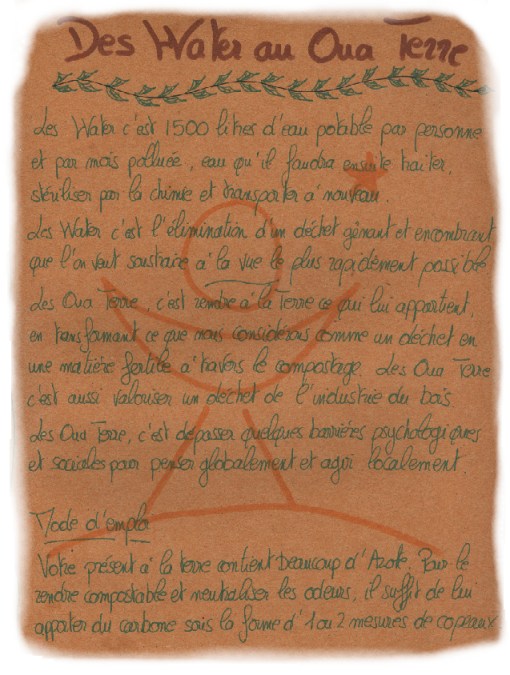 Des Water au Oua Terre
Les Water c'est 1500 litres d'eau potable par personne
et par mois polluée, eau qu'il faudra ensuite traiter,
stériliser par la chimie et transporter à nouveau.
Les Water c'est l'élimination d'un déchet gênant et encombrant
que l'on veut soustraire à la vue le plus rapidement possible
Les Oua Terre, c'est rendre à la terre ce qui lui appartient,
en transformant ce que nous considérons comme un déchet en
une matière fertile à travers le compostage. Les Oua Terre
c'est aussi valoriser un déchet de l'industrie du bois.
Les Oua Terre, c'est dépasser quelques barrières psychologiques
et sociales pour penser globalement et agir localement
Mode d'emploi
Votre présent à la terre contient beaucoup d'Azote. Pour le
rendre compostable et neutraliser les odeurs, il suffit de lui
apporter du carbone sous la forme d'1 ou 2 mesures de copeaux